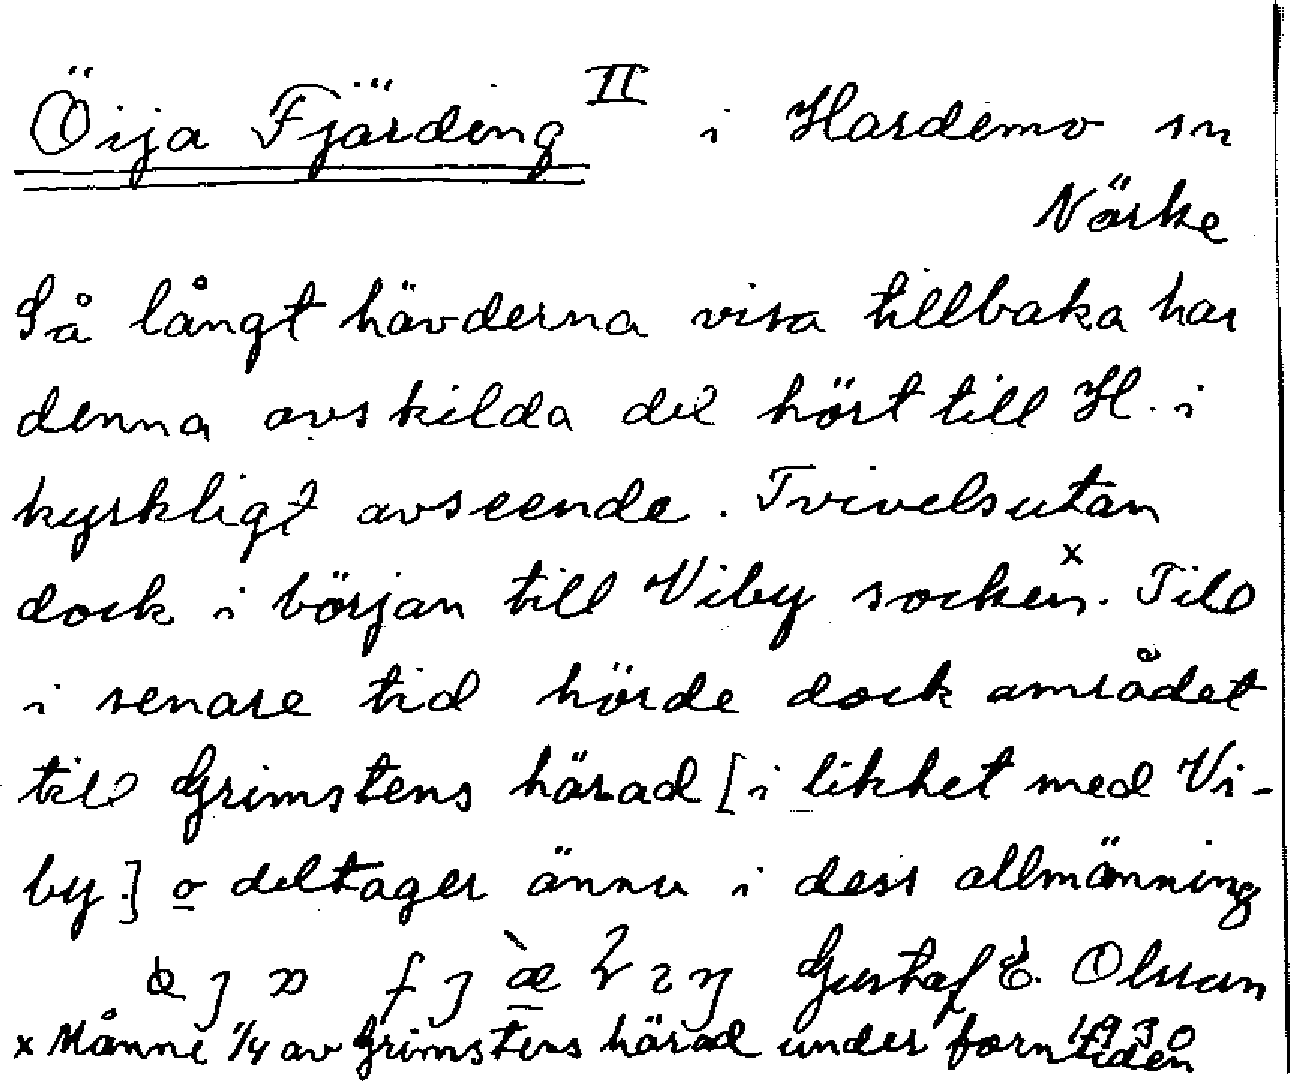 Öija Fjärding II i Hardemo sn
Närke
Så långt hävderna visa tillbaka har
denna avskilda del hört till H. i
kyrkligt avseende. Tvivelsutan
dock i början till Viby socken.x Till
i senare tid hörde dock området
till Grimstens härad [i likhet med Vi-
by.] o deltager ännu i dess allmänning
Gustaf E. Olsson
x Månne 1/4 av Grimstens härad under forntiden
1930